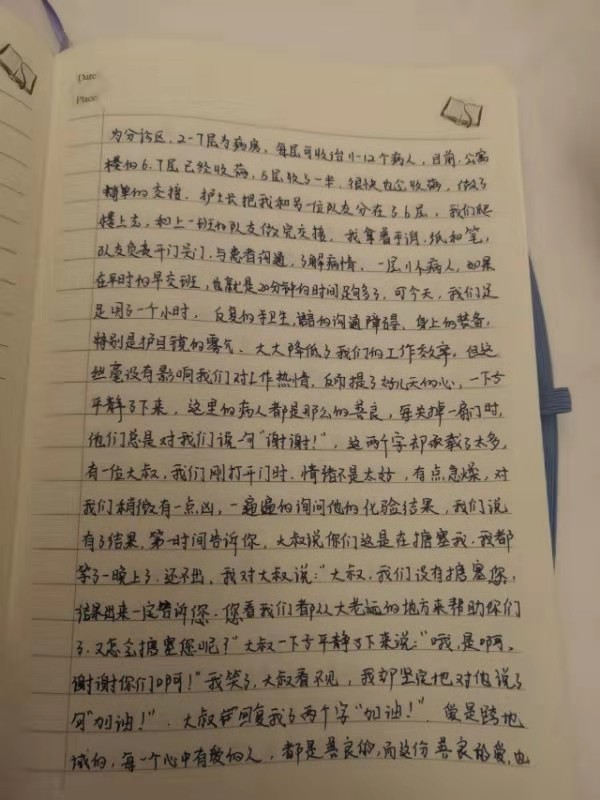 Date
Place
为分诊区，2-7层为病房，每层可收治11-12个病人，目前，公寓
楼的6.7层已经收满，5层收了一半，很快也会收满，做了
简单的交接，护士长把我和另一位队友分在了6层，我们爬
楼上去，和上一班的队友做完交接，我拿着手消.纸和笔，
队友负责开门关门，与患者沟通，了解病情，一层11个病人，如果
在平时的早交班，也就是20分钟的时间足够了，可今天，我们足
足用了一个小时，反复的手卫生，语言的沟通障碍，身上的装备，
特别是护目镜的雾气，大大降低了我们的工作效率，但这
丝毫没有影响我们对工作热情，反而提了好几天的心，一下子
平静了下来，这里的病人都是那么的善良，每关掉一扇门时，
他们总是对我们说一句“谢谢！”，这两个字却承载了太多，
有一位大叔，我们刚打开门时，情绪不是太好，有点急燥，对
我们稍微有一点凶，一遍遍的询问他的化验结果，我们说
有了结果，第一时间告诉你，大叔说你们这是在搪塞我，我都
等了一晚上了，还不出，我对大叔说：“大叔，我们没有搪塞您，
结果出来一定告诉您，您看我们都从大老远的地方来帮助你们
了，又怎会搪塞您呢？”大叔一下子平静了下来说：“哦，是啊，
谢谢你们啊！”我笑了，大叔看不见，我却坚定地对他说了
句“加油！”，大叔回复我了两个字“加油！”，爱是跨地
域的，每一个心中有爱的人，都是善良的，而这份善良的爱，也